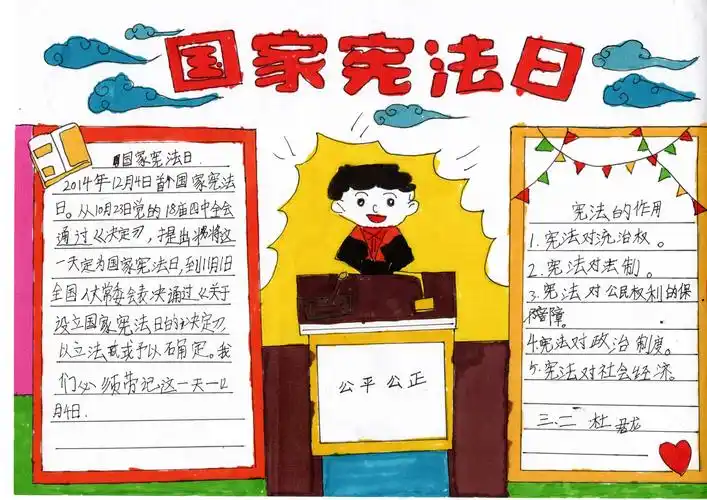 国家宪法日
国家宪法日.
2014年12月4日首个国家宪法
日。从10月23日党的18届四中全会
通过《决定》,提出将这
一天定为国家宪法日,到11月1日
全国人大常委会表决通过《关于
设立国家宪法日的决定》
以立法式或予以确定。我
们必须带记这一天一12
月4日.
公平公正
宪法的作用
1.宪法对统治权。
2.宪法对法制。
3.宪法对公民权利的保
障。
4.宪法对政治制度。
5.宪法对社会经济。
三.二 杜 龙